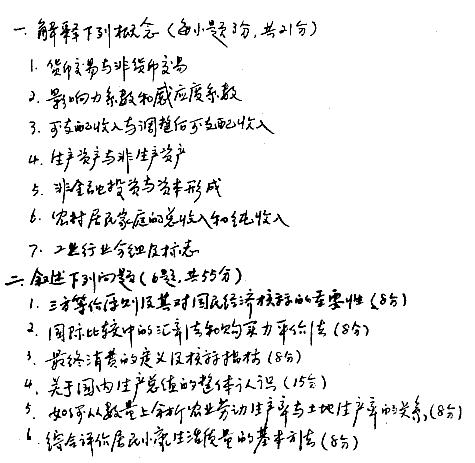 一. 解释下列概念 (每小题3分, 共21分)
1. 货币交易与非货币交易
2. 影响力系数和感应度系数
3. 可支配收入与调整后可支配收入
4. 生产资产与非生产资产
5. 非金融投资与资本形成
6. 农村居民家庭的总收入和纯收入
7. 工业行业分组及标志
二. 叙述下列问题 (6题, 共55分)
1. 三方等价原则及其对国民经济核算的重要性 (8分)
2. 国际比较中的汇率法和购买力平价法 (8分)
3. 最终消费的定义及核算指标 (8分)
4. 关于国内生产总值的整体认识 (15分)
5. 如何从数量上分析农业劳动生产率与土地生产率的关系 (8分)
6. 综合评价居民小康生活质量的基本方法 (8分)